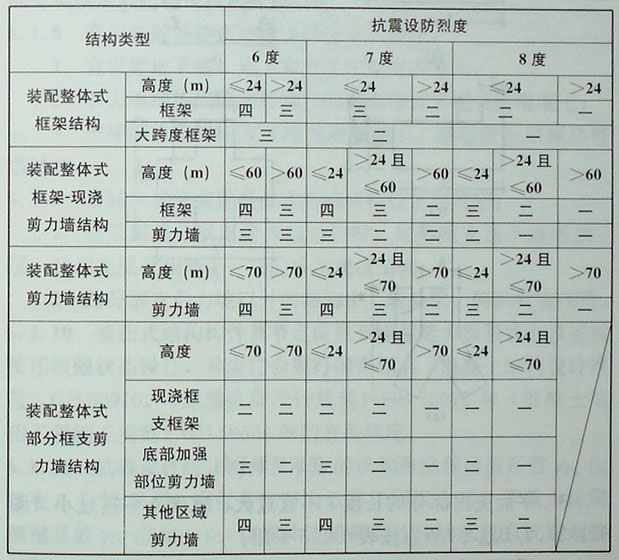 结构类型 抗震设防烈度
6度 7度 8度
装配整体式框架结构 高度（m） ≤24 >24 ≤24 >24 ≤24 >24
框架 四 三 三 二 二 一
大跨度框架 三 二 一
装配整体式框架-现浇剪力墙结构 高度（m） ≤60 >60 ≤24 >24且≤60 >60 ≤24 >24且≤60 >60
框架 四 三 四 三 二 三 二 一
剪力墙 三 三 三 二 二 二 一 一
装配整体式剪力墙结构 高度（m） ≤70 >70 ≤24 >24且≤70 >70 ≤24 >24且≤70 >70
剪力墙 四 三 四 三 二 三 二 一
装配整体式部分框支剪力墙结构 高度 ≤70 >70 ≤24 >24且≤70 >70 ≤24 >24且≤70
现浇框支框架 二 二 二 二 一 一 一
底部加强部位剪力墙 三 二 三 二 一 二 一
其他区域剪力墙 四 三 四 三 二 三 二